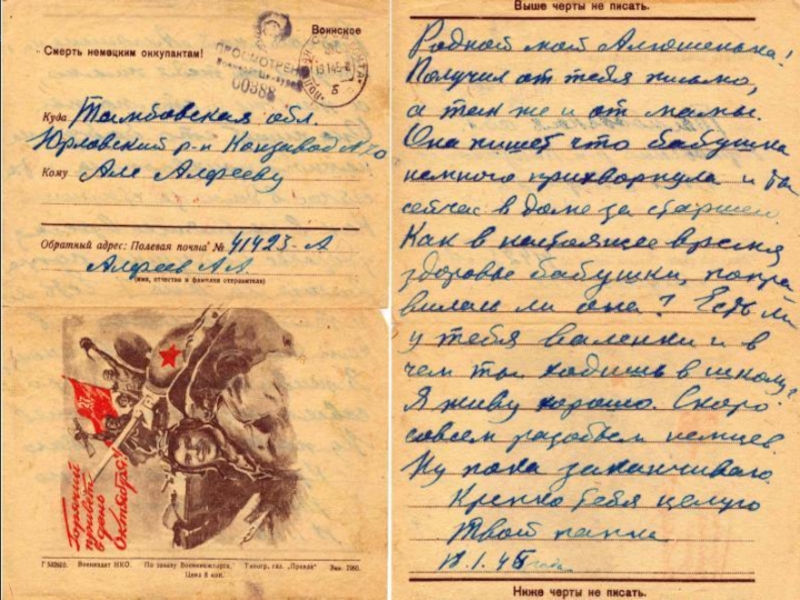 Воинское
Смерть немецким оккупантам!
ПРОСМОТРЕНО
00888
Куда Тамбовская обл.
Юрловский р-н Конзавод №70
Кому Але Алфееву
Обратный адрес: Полевая почта № 41423-А
Алфеев А.А.
(имя, отчество и фамилия отправителя)
27
Горячий
привет
в день
Октября!
Воениздат НКО. По заказу Военкнижторга. Типогр. газ. „Правда“ Зак.
Цена 8 коп.
Выше черты не писать.
Родной мой Алюшенька!
Получил от тебя письмо,
а так же и от мамы.
Она пишет что бабушка
немного прихворнула и ты
сейчас в доме за старшего.
Как в настоящее время
здоровье бабушки, попра
вилась ли она? Есть ли
у тебя валенки и в
чем ты ходишь в школу?
Я живу хорошо. Скоро
совсем разобьем немцев.
Ну пока заканчиваю
Крепко тебя целую
Твой папка
18.1.45 года
Ниже черты не писать.